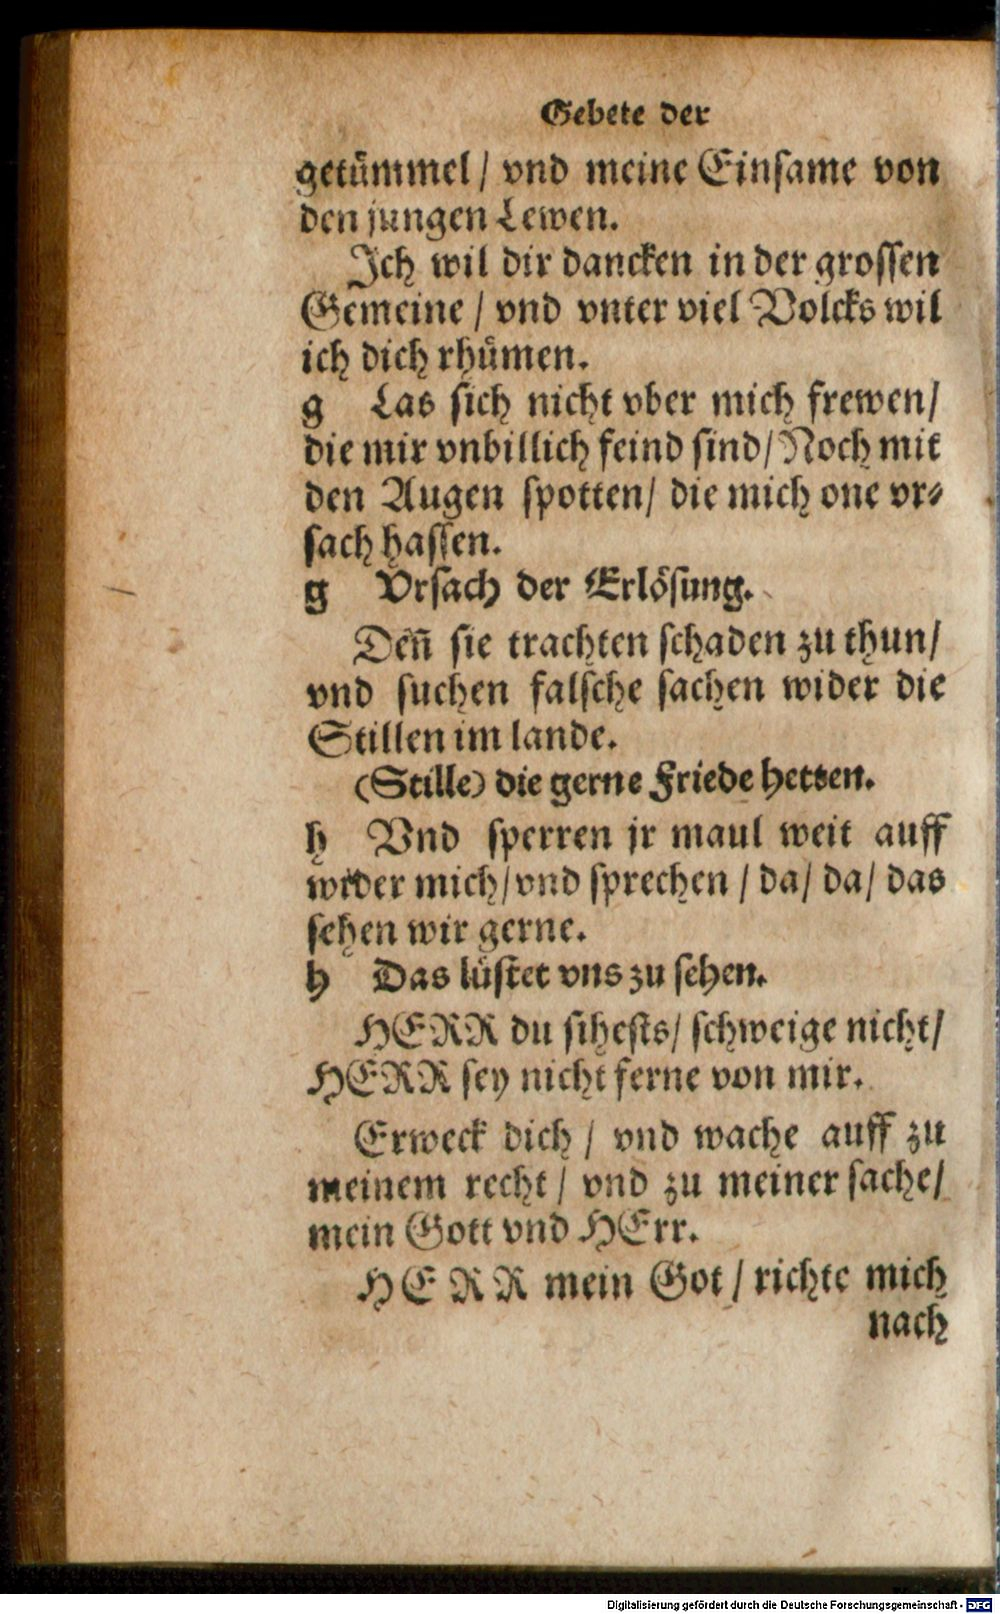 Gebete der
getuͤmmel / vnd meine Einſame von
den jungen Lewen.
Ich wil dir dancken in der groſſen
Gemeine / vnd vnter viel Volcks wil
ich dich rhuͤmen.
g Las ſich nicht vber mich frewen /
die mir vnbillich feind ſind / Noch mit
den Augen ſpotten / die mich one vr⸗
ſach haſſen.
g Vrſach der Erloͤſung.
Deñ ſie trachten ſchaden zu thun /
vnd ſuchen falſche ſachen wider die
Stillen im lande.
(Stille) die gerne Friede hetten.
h Vnd ſperren jr maul weit auff
wider mich / vnd ſprechen / da / da / das
ſehen wir gerne.
h Das luͤſtet vns zu ſehen.
HERR du ſiheſts / ſchweige nicht /
HERR ſey nicht ferne von mir.
Erweck dich / vnd wache auff zu
meinem recht / vnd zu meiner ſache /
mein Gott vnd HErr.
HERR mein Got / richte mich
nach
Digitalisierung gefördert durch die Deutsche Forschungsgemeinschaft - DFG